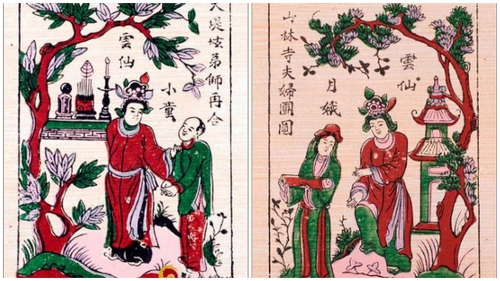 弟師再合
小童
雲仙
雲仙
月娥
林寺夫婦團圓